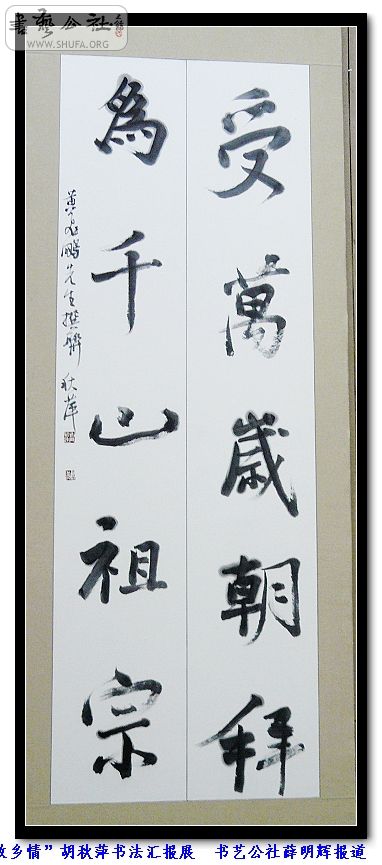 書藝公社
WWW.SHUFA.ORG
受萬歲朝拜
為千山祖宗
黄君鵬先生撰聯 秋萍
故乡情”胡秋萍书法汇报展 书艺公社薛明辉报道